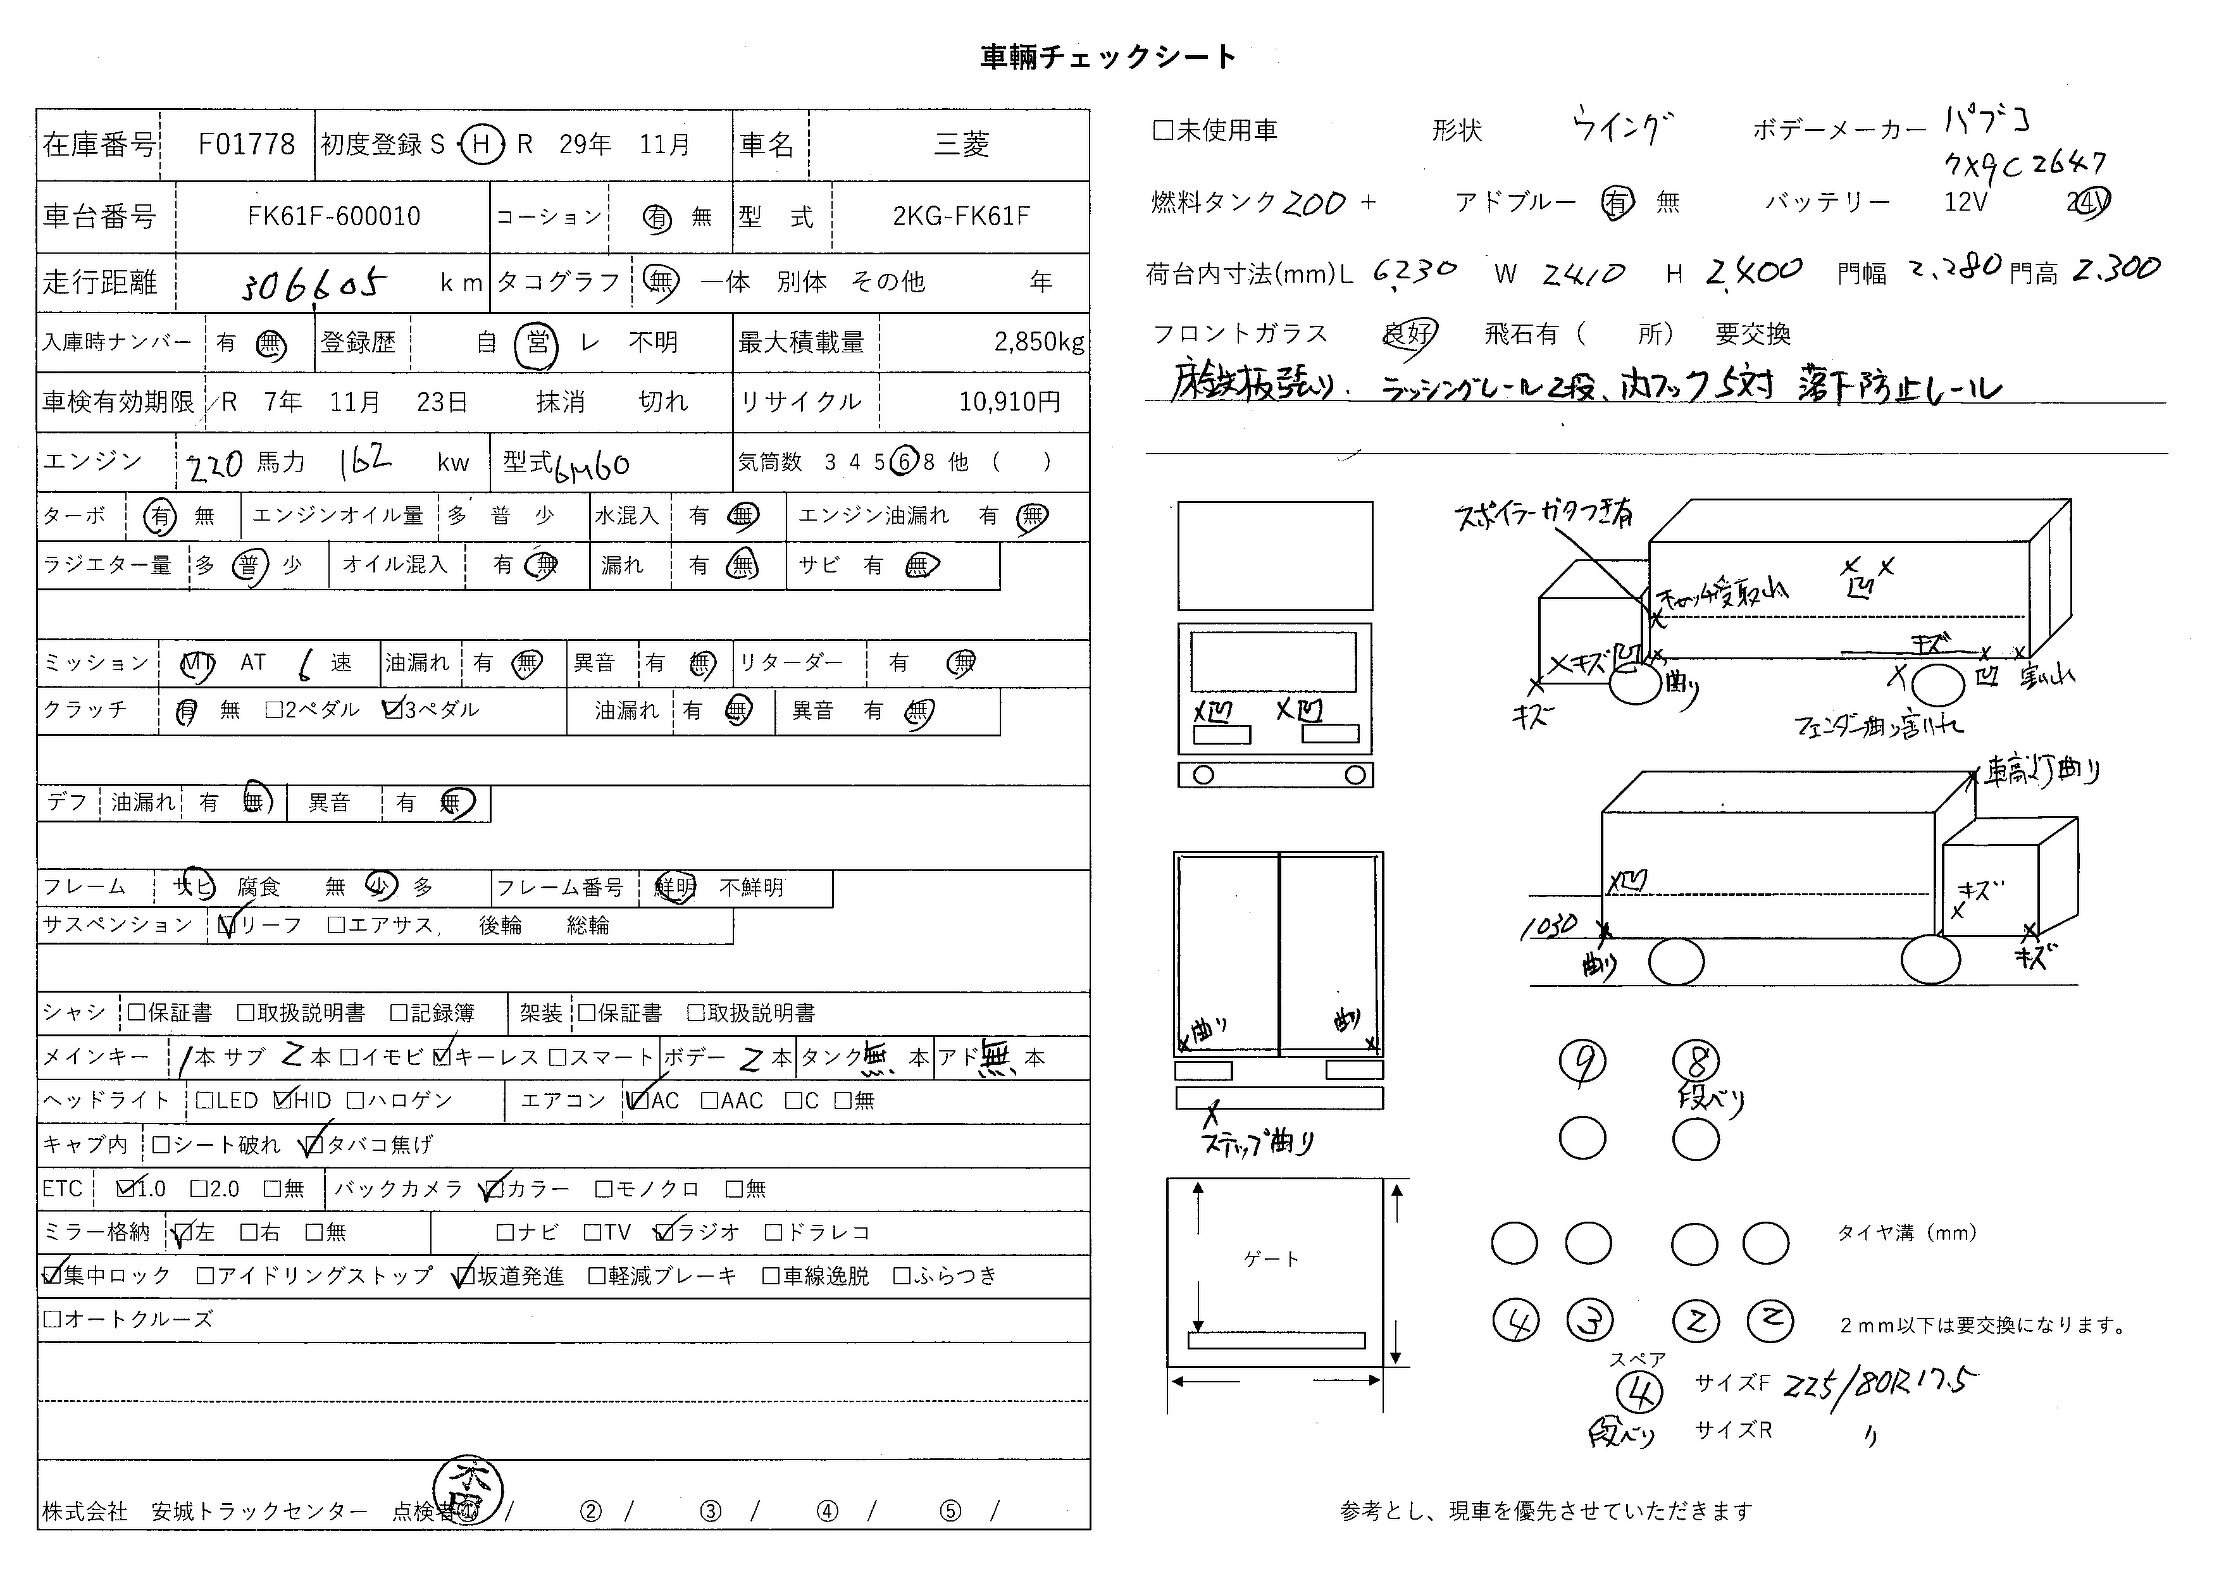 車輛チェックシート
在庫番号 F01778 初度登録 S・H・R 29年 11月 車名 三菱
車台番号 FK61F-600010 コーション 有 無 型 式 2KG-FK61F
走行距離 306,605 km タコグラフ 無 一体 別体 その他 年
入庫時ナンバー 有 無 登録歴 自 営 レ 不明 最大積載量 2,850kg
車検有効期限 R 7年 11月 23日 抹消 切れ リサイクル 10,910円
エンジン 220 馬力 162 kw 型式 6M60 気筒数 3 4 5 6 8 他 ( )
ターボ 有 無 エンジンオイル量 多 普 少 水混入 有 無 エンジン油漏れ 有 無
ラジエター量 多 普 少 オイル混入 有 無 漏れ 有 無 サビ 有 無
ミッション MT AT 6 速 油漏れ 有 無 異音 有 無 リターダー 有 無
クラッチ 有 無 □2ペダル ☑3ペダル 油漏れ 有 無 異音 有 無
デフ 油漏れ 有 無 異音 有 無
フレーム サビ 腐食 無 少 多 フレーム番号 鮮明 不鮮明
サスペンション ☑リーフ □エアサス, 後輪 総輪
シャシ □保証書 □取扱説明書 □記録簿 架装 □保証書 □取扱説明書
メインキー 1本 サブ 2本 □イモビ ☑キーレス □スマート ボデー 2本 タンク 無 本 アド 無 本
ヘッドライト □LED ☑HID □ハロゲン エアコン ☑AC □AAC □C □無
キャブ内 □シート破れ ☑タバコ焦げ
ETC ☑1.0 □2.0 □無 バックカメラ ☑カラー □モノクロ □無
ミラー格納 ☑左 □右 □無 □ナビ □TV ☑ラジオ □ドラレコ
☑集中ロック □アイドリングストップ ☑坂道発進 □軽減ブレーキ □車線逸脱 □ふらつき
□オートクルーズ
株式会社 安城トラックセンター 点検者① / ② / ③ / ④ / ⑤ /
□未使用車 形状 ウイング ボデーメーカー パブコ
7X9C2647
燃料タンク 200 + アドブルー 有 無 バッテリー 12V 24V
荷台内寸法(mm) L 6,230 W 2410 H 2,400 門幅 2.280 門高 2.300
フロントガラス 良好 飛石有 ( 所) 要交換
床鉄板張り. ラッシングレール2段、内フック5対 落下防止レール
スポイラーガタつき有
X X
凹
キャッチ受取れ
X
キズ
Xキズ凹 X
X X
X キズ 曲り X 凹 割れ
フェンダー曲り割れ
X凹 X凹
X車高灯曲り
X凹
キズ
X
1030 X
曲り
X
キズ
X曲り 曲りX
X
ステップ曲り
9 8
段べり
ゲート
タイヤ溝(mm)
4 3 2 2 2mm以下は要交換になります。
スペア
4 サイズF 225/80R17.5
段べり サイズR 〃
参考とし、現車を優先させていただきます